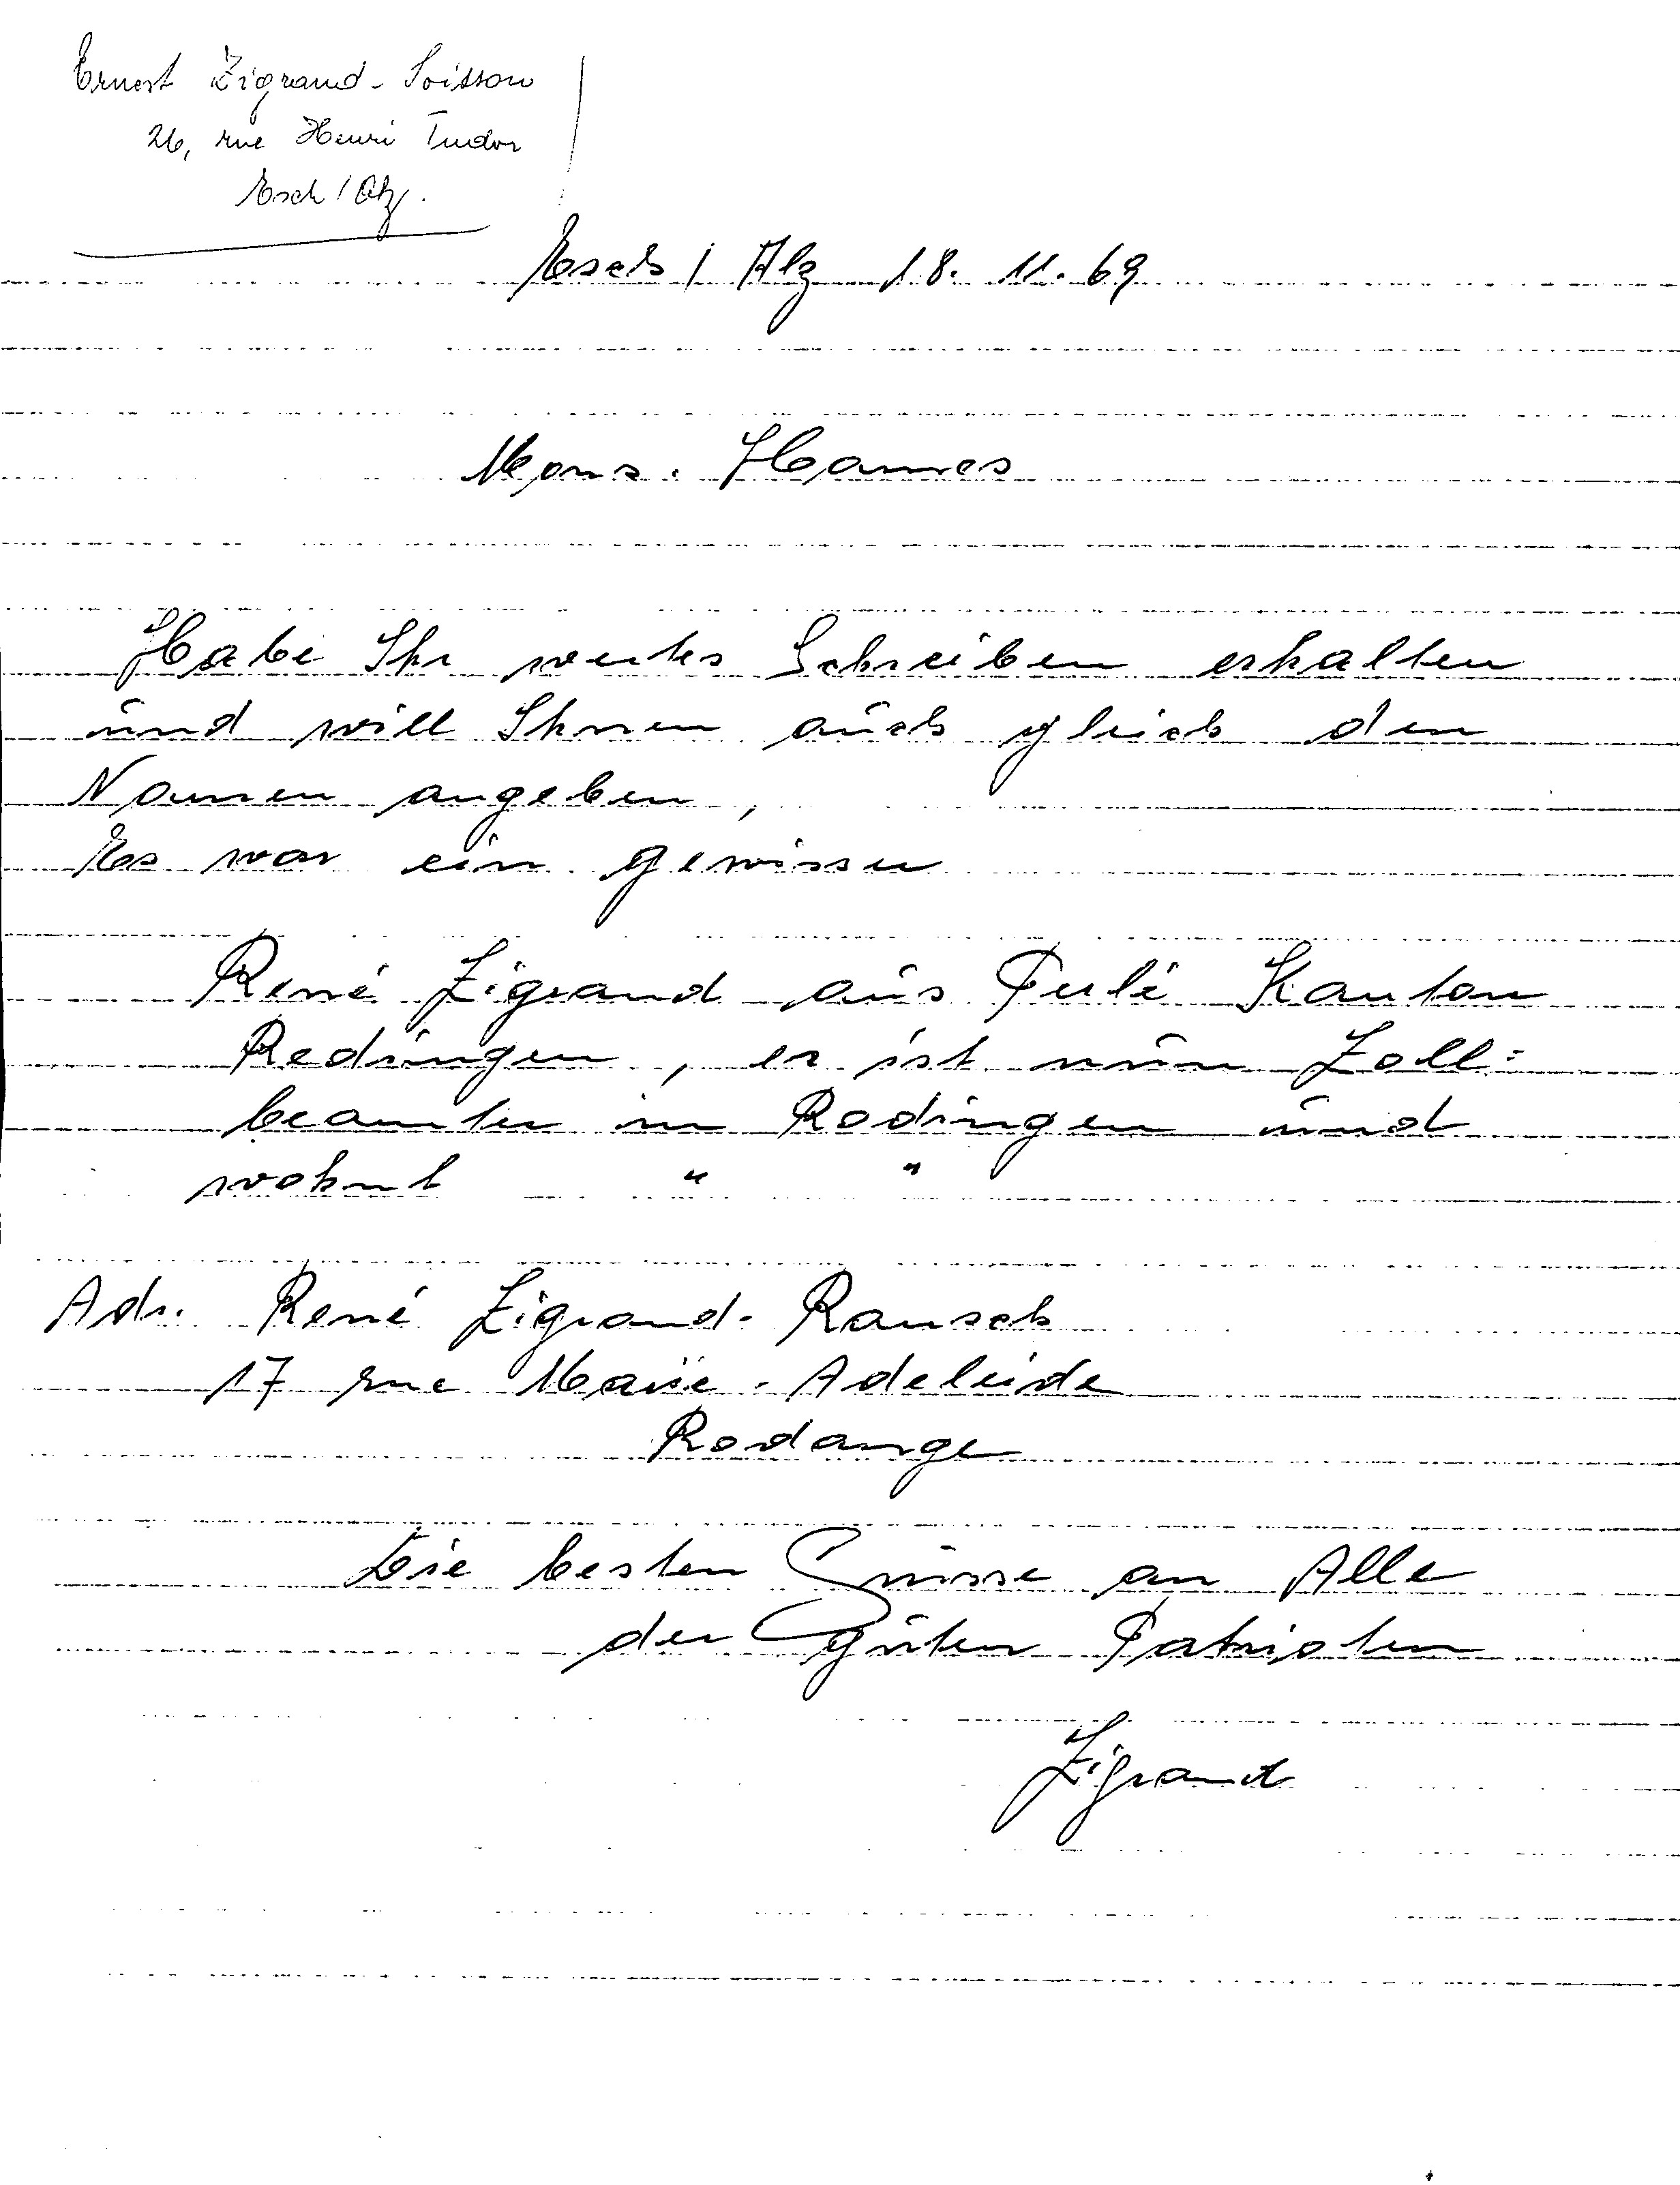 Ernest Zigrand-Soisson
26, rue Henri Tudor
Esch/Alz.
Esch / Alz 18. 11. 69
Mons. Hames
Habe Ihr wertes Schreiben erhalten
und will Ihnen auch gleich den
Namen angeben,
Es war ein gewisser
René Zigrand aus Perlé Kanton
Redingen, er ist nun Zoll=
beamter in Rodingen und
wohnt " "
Adr. René Zigrand-Rausch
17 rue Marie-Adeleide
Rodange
Die besten Grüsse an Alle
der guten Patrioten
Zigrand